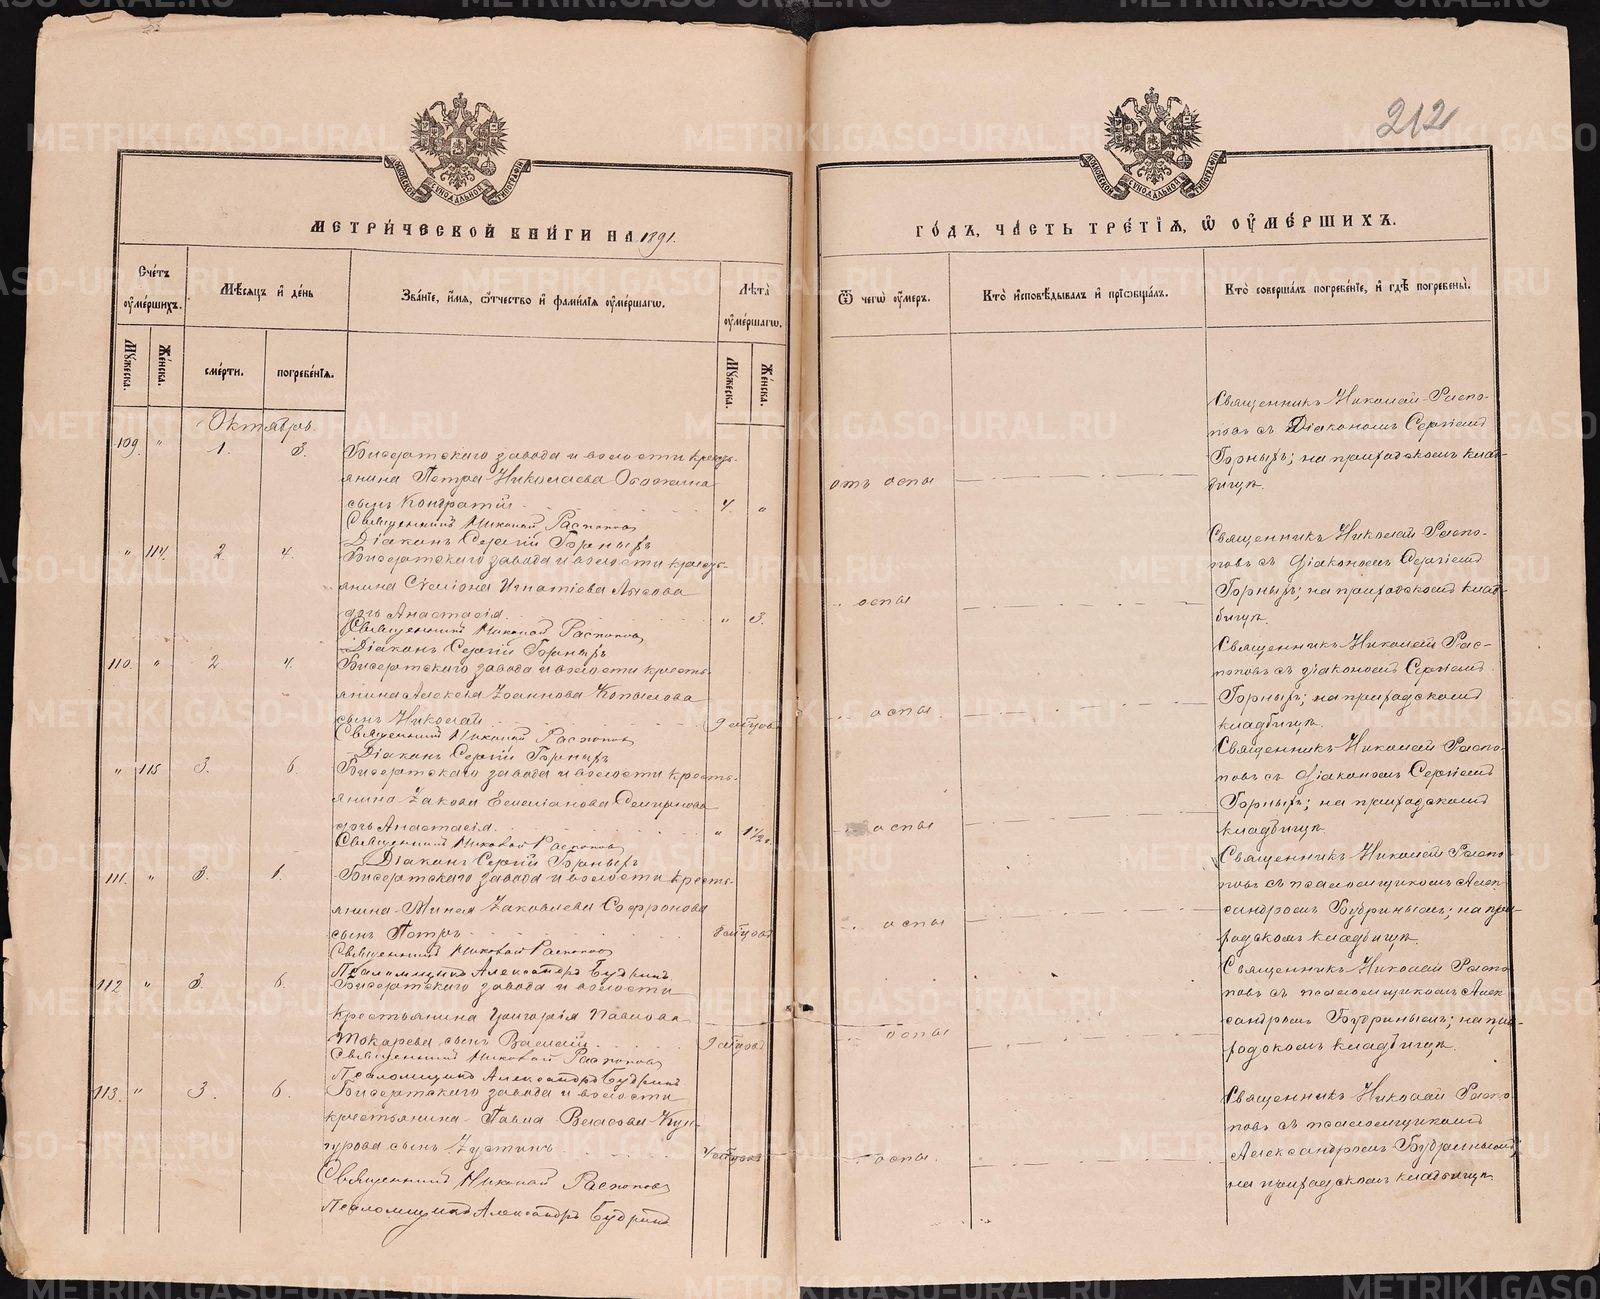 212
МЕТРИ́ЧЕСКОЙ КНИ́ГИ НА 1891.
ГО́ДЪ, ЧА́СТЬ ТРЕ́ТІѦ, Ѽ ОУ҆МЕ́РШИХЪ.
Сче́тъ оу҆ме́ршихъ.
Мѣ́сѧцъ и҆ де́нь
Зва́нїе, и҆́мѧ, ѻ҆́тчество и҆ фами́лїѧ оу҆ме́ршагѡ.
Лѣ́та оу҆ме́ршагѡ.
Ѿ чегѡ̀ оу҆́меръ.
Кто̀ и҆сповѣ́дывалъ и҆ прїѡбща́лъ.
Кто̀ соверша́лъ погребе́нїе, и҆ гдѣ̀ погребены̀.
Мꙋ́жеска.
Же́нска.
сме́рти.
погребе́нїѧ.
Мꙋ́жеска.
Же́нска.
Октябрь
109. " 1. 3.
Бисертскаго завода и волости кресть-
янина Петра Николаева
сынъ Кондратій 4. "
Священникъ Николай Распоповъ
Діаконъ Сергій Горныхъ
отъ оспы
Священникъ Николай Распо-
повъ съ Діакономъ Сергіемъ
Горныхъ; на приходскомъ клад-
бищѣ.
" 114. 2 4.
Бисертскаго завода и волости кресть-
янина Симіона Игнатіева Лысова
дочь Анастасія. " 3.
Священникъ Николай Распоповъ
Діаконъ Сергій Горныхъ
оспы
Священникъ Николай Распо-
повъ съ Діакономъ Сергіемъ
Горныхъ; на приходскомъ клад-
бищѣ.
110. " 2 4.
Бисертскаго завода и волости кресть-
янина Алексія Іоаннова Копылова
сынъ Николай 9 мѣсяцовъ
Священникъ Николай Распоповъ
Діаконъ Сергій Горныхъ
оспы.
Священникъ Николай Рас-
поповъ съ діакономъ Сергіемъ
Горныхъ; на приходскомъ
кладбищѣ.
" 115 3. 6.
Бисертскаго завода и волости кресть-
янина Іакова Емеліанова
дочь Анастасія. " 1 1/2.
Священникъ Николай Распоповъ
Діаконъ Сергій Горныхъ
оспы
Священникъ Николай Распо-
повъ съ Діакономъ Сергіемъ
Горныхъ; на приходскомъ
кладбищѣ.
111. " 3.
Бисертскаго завода и волости кресть-
янина Минея Іаковлева Софронова
сынъ Петръ 8 мѣсяцовъ
Священникъ Николай Распоповъ
Псаломщикъ Александръ Будринъ
оспы
Священникъ Николай Распо-
повъ съ псаломщикомъ Алек-
сандромъ Будринымъ; на при-
ходскомъ кладбищѣ.
112 " 3. 6.
Бисертскаго завода и волости
крестьянина Григорія Павлова
Токарева сынъ Василій 9 мѣсяцовъ
Священникъ Николай Распоповъ
Псаломщикъ Александръ Будринъ
оспы
Священникъ Николай Распо-
повъ съ псаломщикомъ Алек-
сандромъ Будринымъ; на при-
ходскомъ кладбищѣ.
113. " 3. 6.
Бисертскаго завода и волости
крестьянина Павла Власова Кун-
гурова сынъ Іустинъ
Священникъ Николай Распоповъ
Псаломщикъ Александръ Будринъ
оспы.
Священникъ Николай Распо-
повъ съ псаломщикомъ
Александромъ Будринымъ;
на приходскомъ кладбищѣ.
METRIKI.GASO-URAL.RU